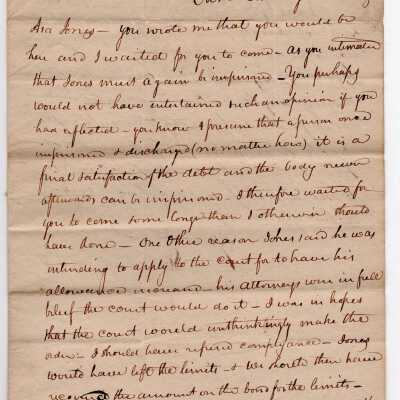 Asa Jones — you wrote me that you would be
here and I waited for you to come — as you intimated
that Jones must again be imprisoned — You perhaps
would not have entertained such an opinion if you
had reflected — you know I presume that a person once
imprisoned & discharged (no matter how) it is a
final satisfaction of the debt and the body never
afterwards can be imprisoned — I therefore waited for
you to come some longer than I otherwise should
have done — One other reason Jones said he was
intending to apply to the court for to have his
allowance increased — his attorneys were in full
belief the court would do it — I was in hopes
that the court would unthinkingly make the
order — I should have refused complyance — Jones
would have left the limits — & we should then have
recovered the amount on the bond for the limits —